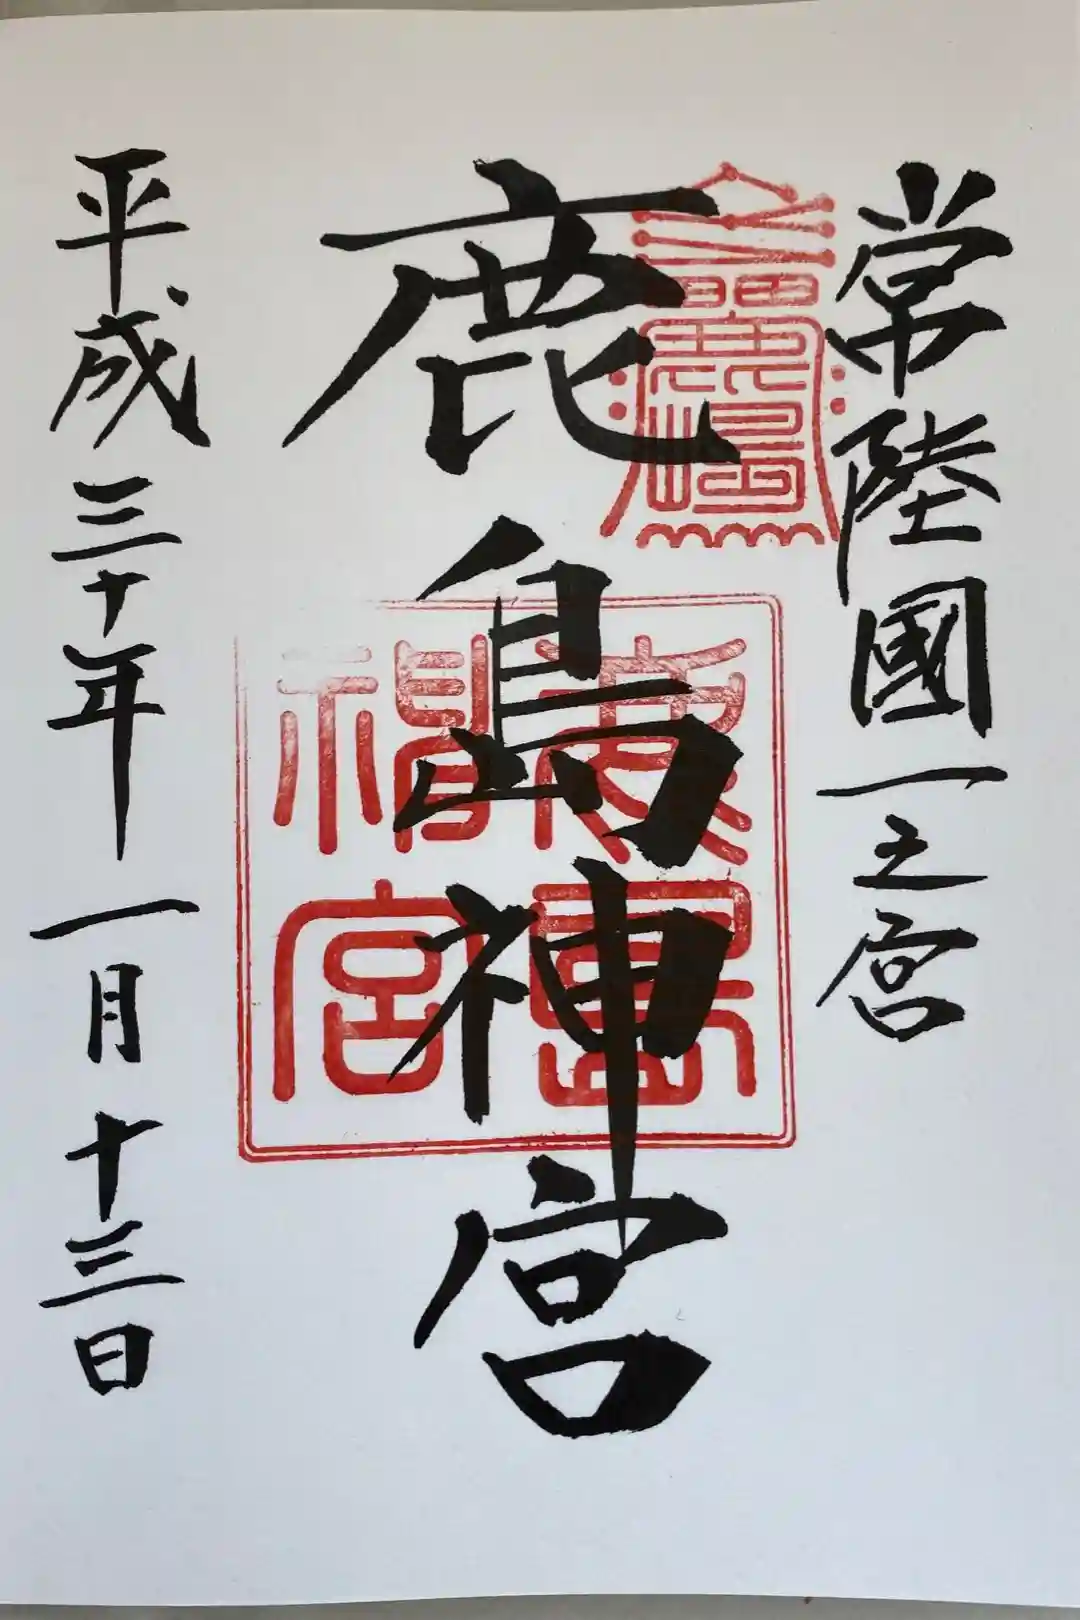 常陸國一之宮
鹿島神宮
鹿島神宮
平成三十年一月十三日